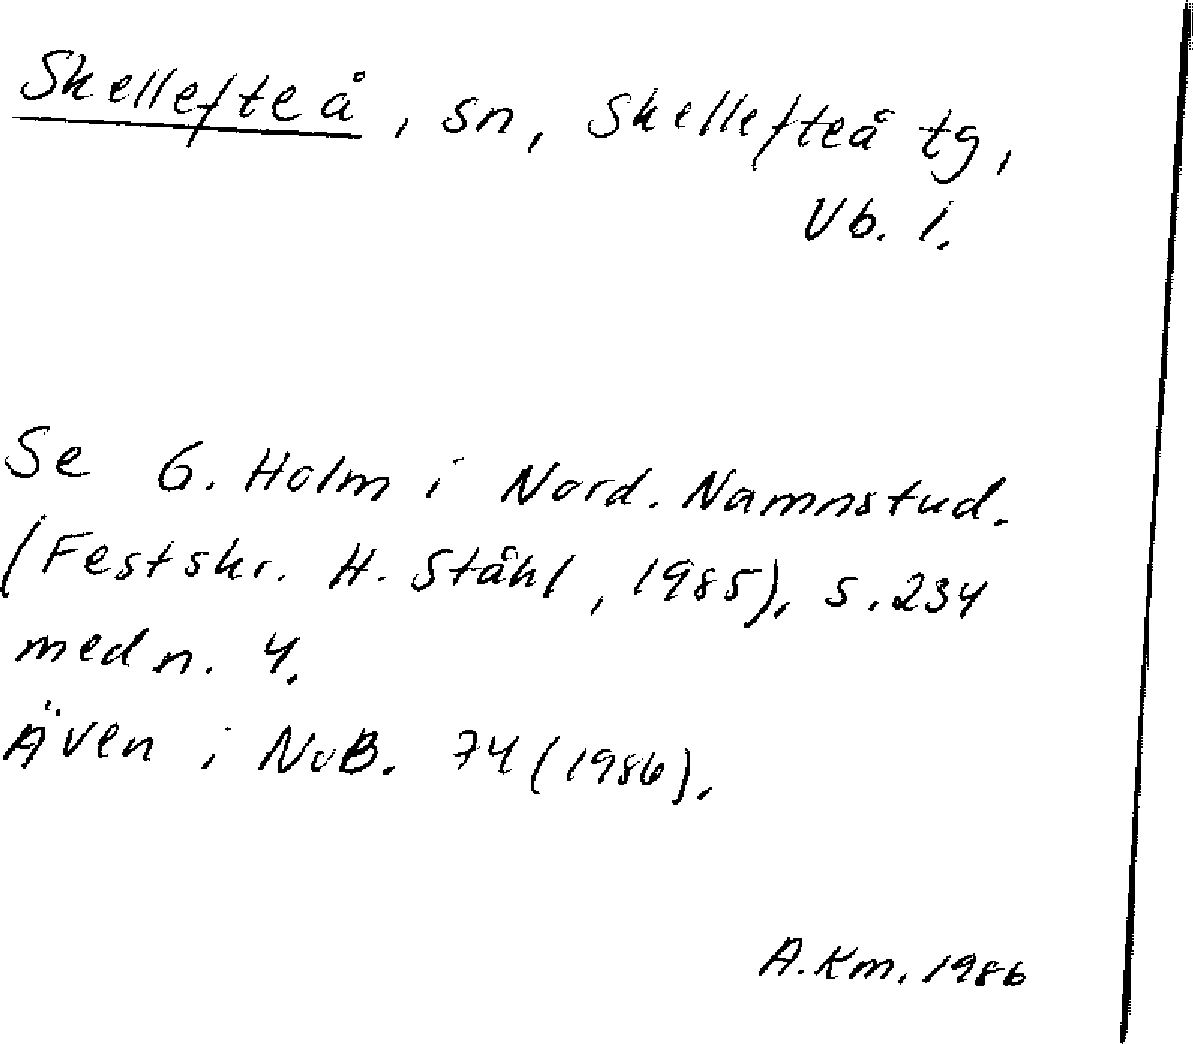 Skellefteå, sn, Skellefteå tg,
Vb. l.
Se G. Holm i Nord. Namnstud.
(Festskr. H. Ståhl, 1985), s. 234
med n. 4.
Även i NoB. 74 (1986).
A. Km. 1986